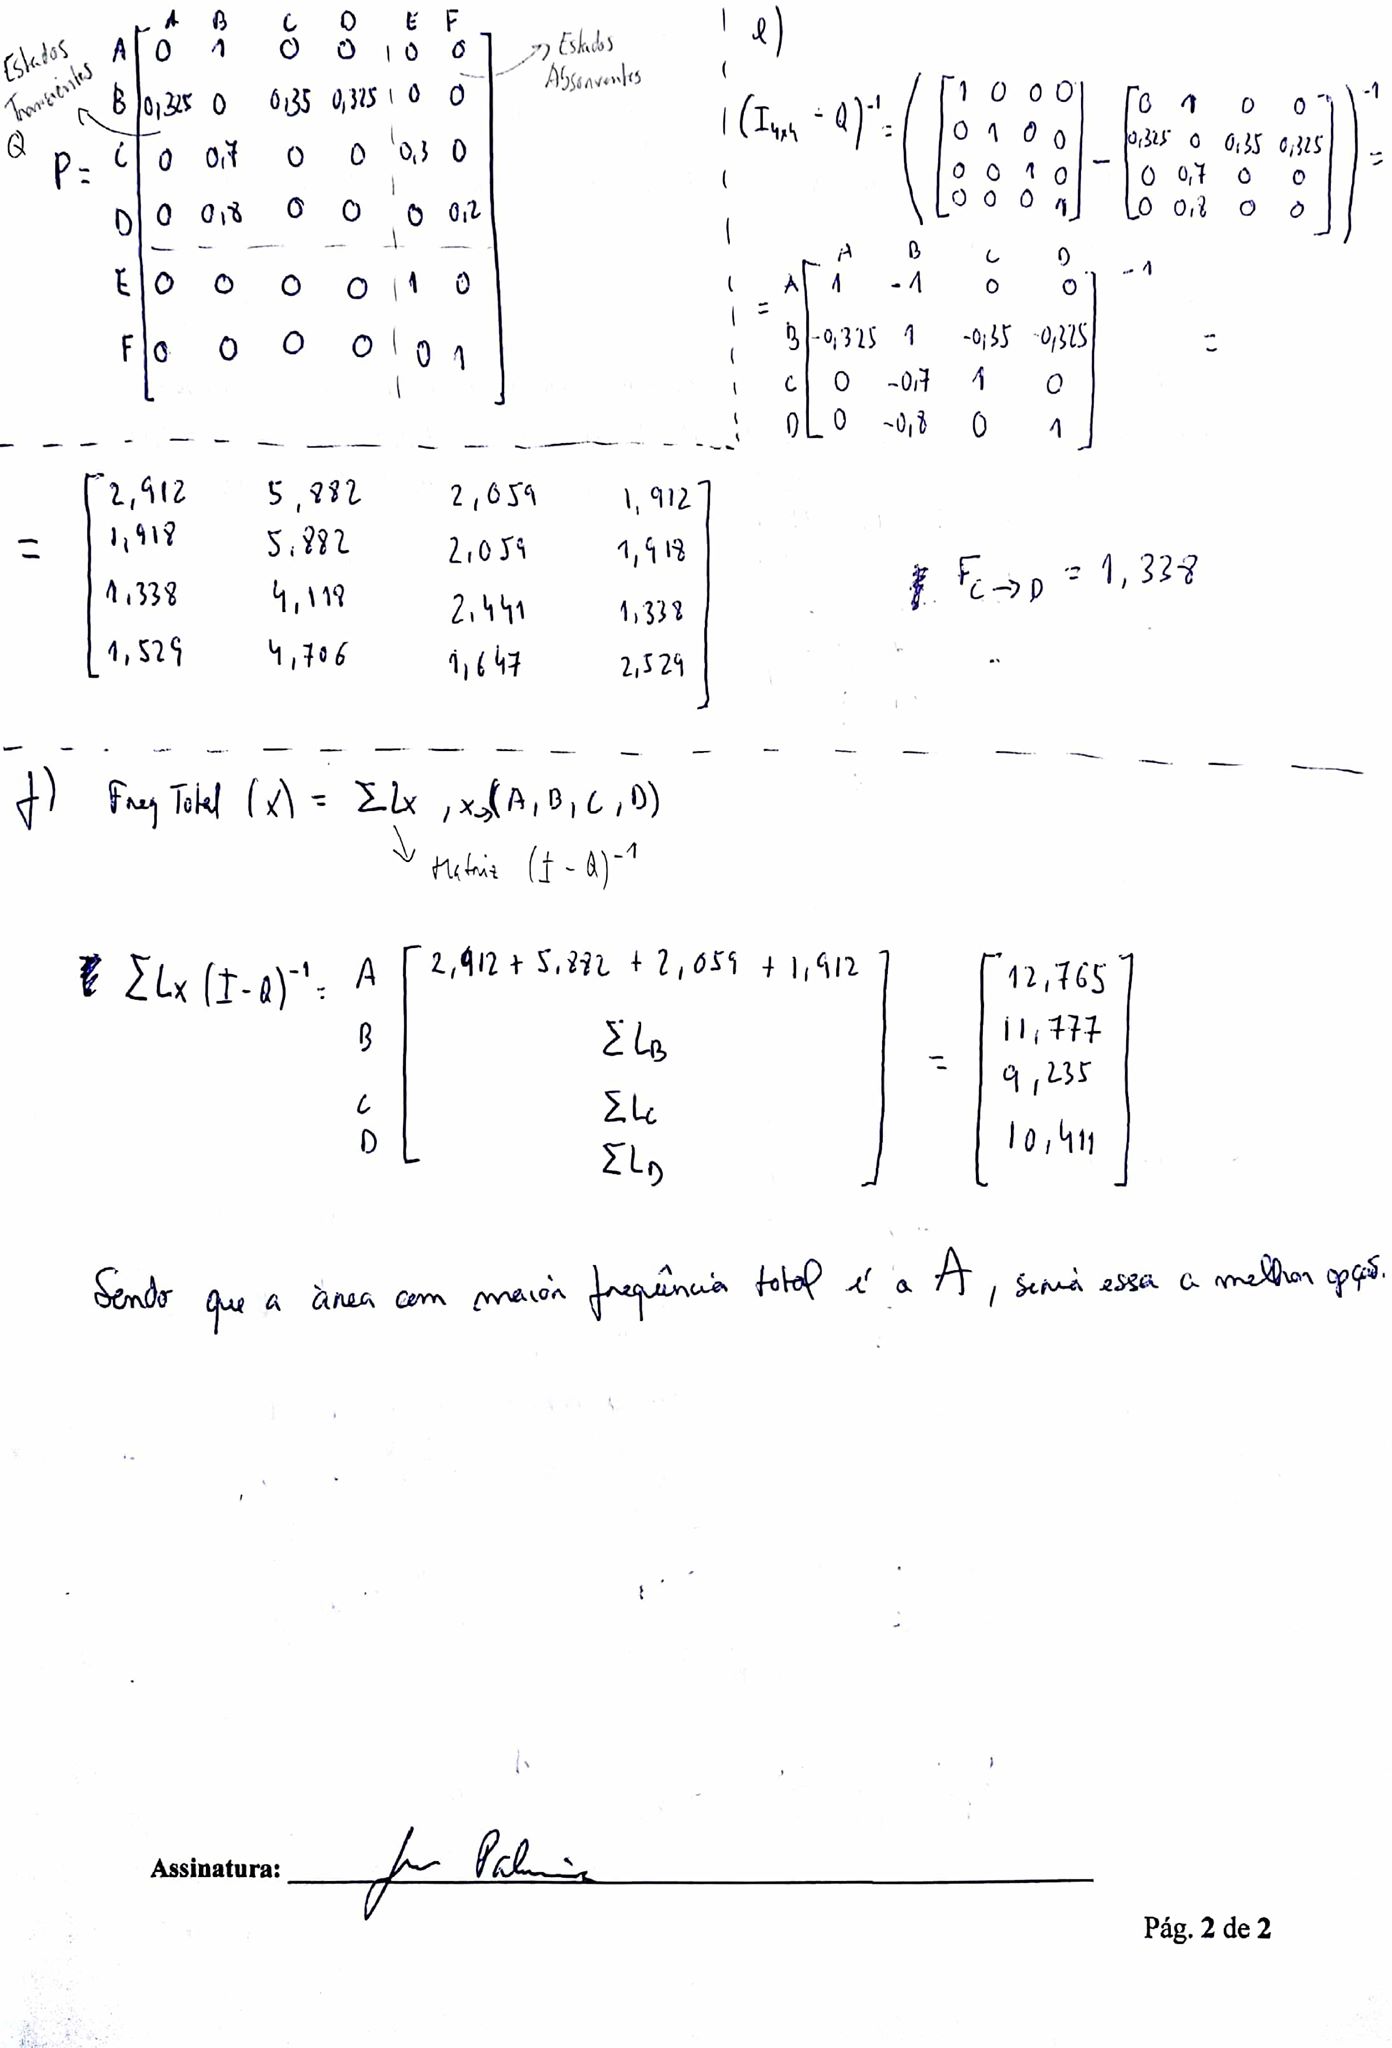 A B C D E F
Estados Transientes Q
P =
A 0 1 0 0 0 0
B 0,325 0 0,35 0,325 0 0
C 0 0,7 0 0 0,3 0
D 0 0,8 0 0 0 0,2
E 0 0 0 0 1 0
F 0 0 0 0 0 1
Estados Absorventes
e)
(I4x4 - Q)^-1 = (
1 0 0 0
0 1 0 0
0 0 1 0
0 0 0 1
-
0 1 0 0
0,325 0 0,35 0,325
0 0,7 0 0
0 0,8 0 0
)^-1 =
A B C D
= A 1 -1 0 0
B -0,325 1 -0,35 -0,325
C 0 -0,7 1 0
D 0 -0,8 0 1
-1 =
=
2,912 5,882 2,059 1,912
1,918 5,882 2,059 1,918
1,338 4,118 2,441 1,338
1,529 4,706 1,647 2,529
F C→D = 1,338
f) Freq Total (x) = ΣLx , x→(A, B, C, D)
↓ Matriz (I - Q)^-1
ΣLx (I-Q)^-1 =
A 2,912 + 5,882 + 2,059 + 1,912
B ΣLB
C ΣLC
D ΣLD
=
12,765
11,777
9,235
10,411
Sendo que a àrea com maior frequência total é a A, seria essa a melhor opção.
Assinatura:
Pág. 2 de 2